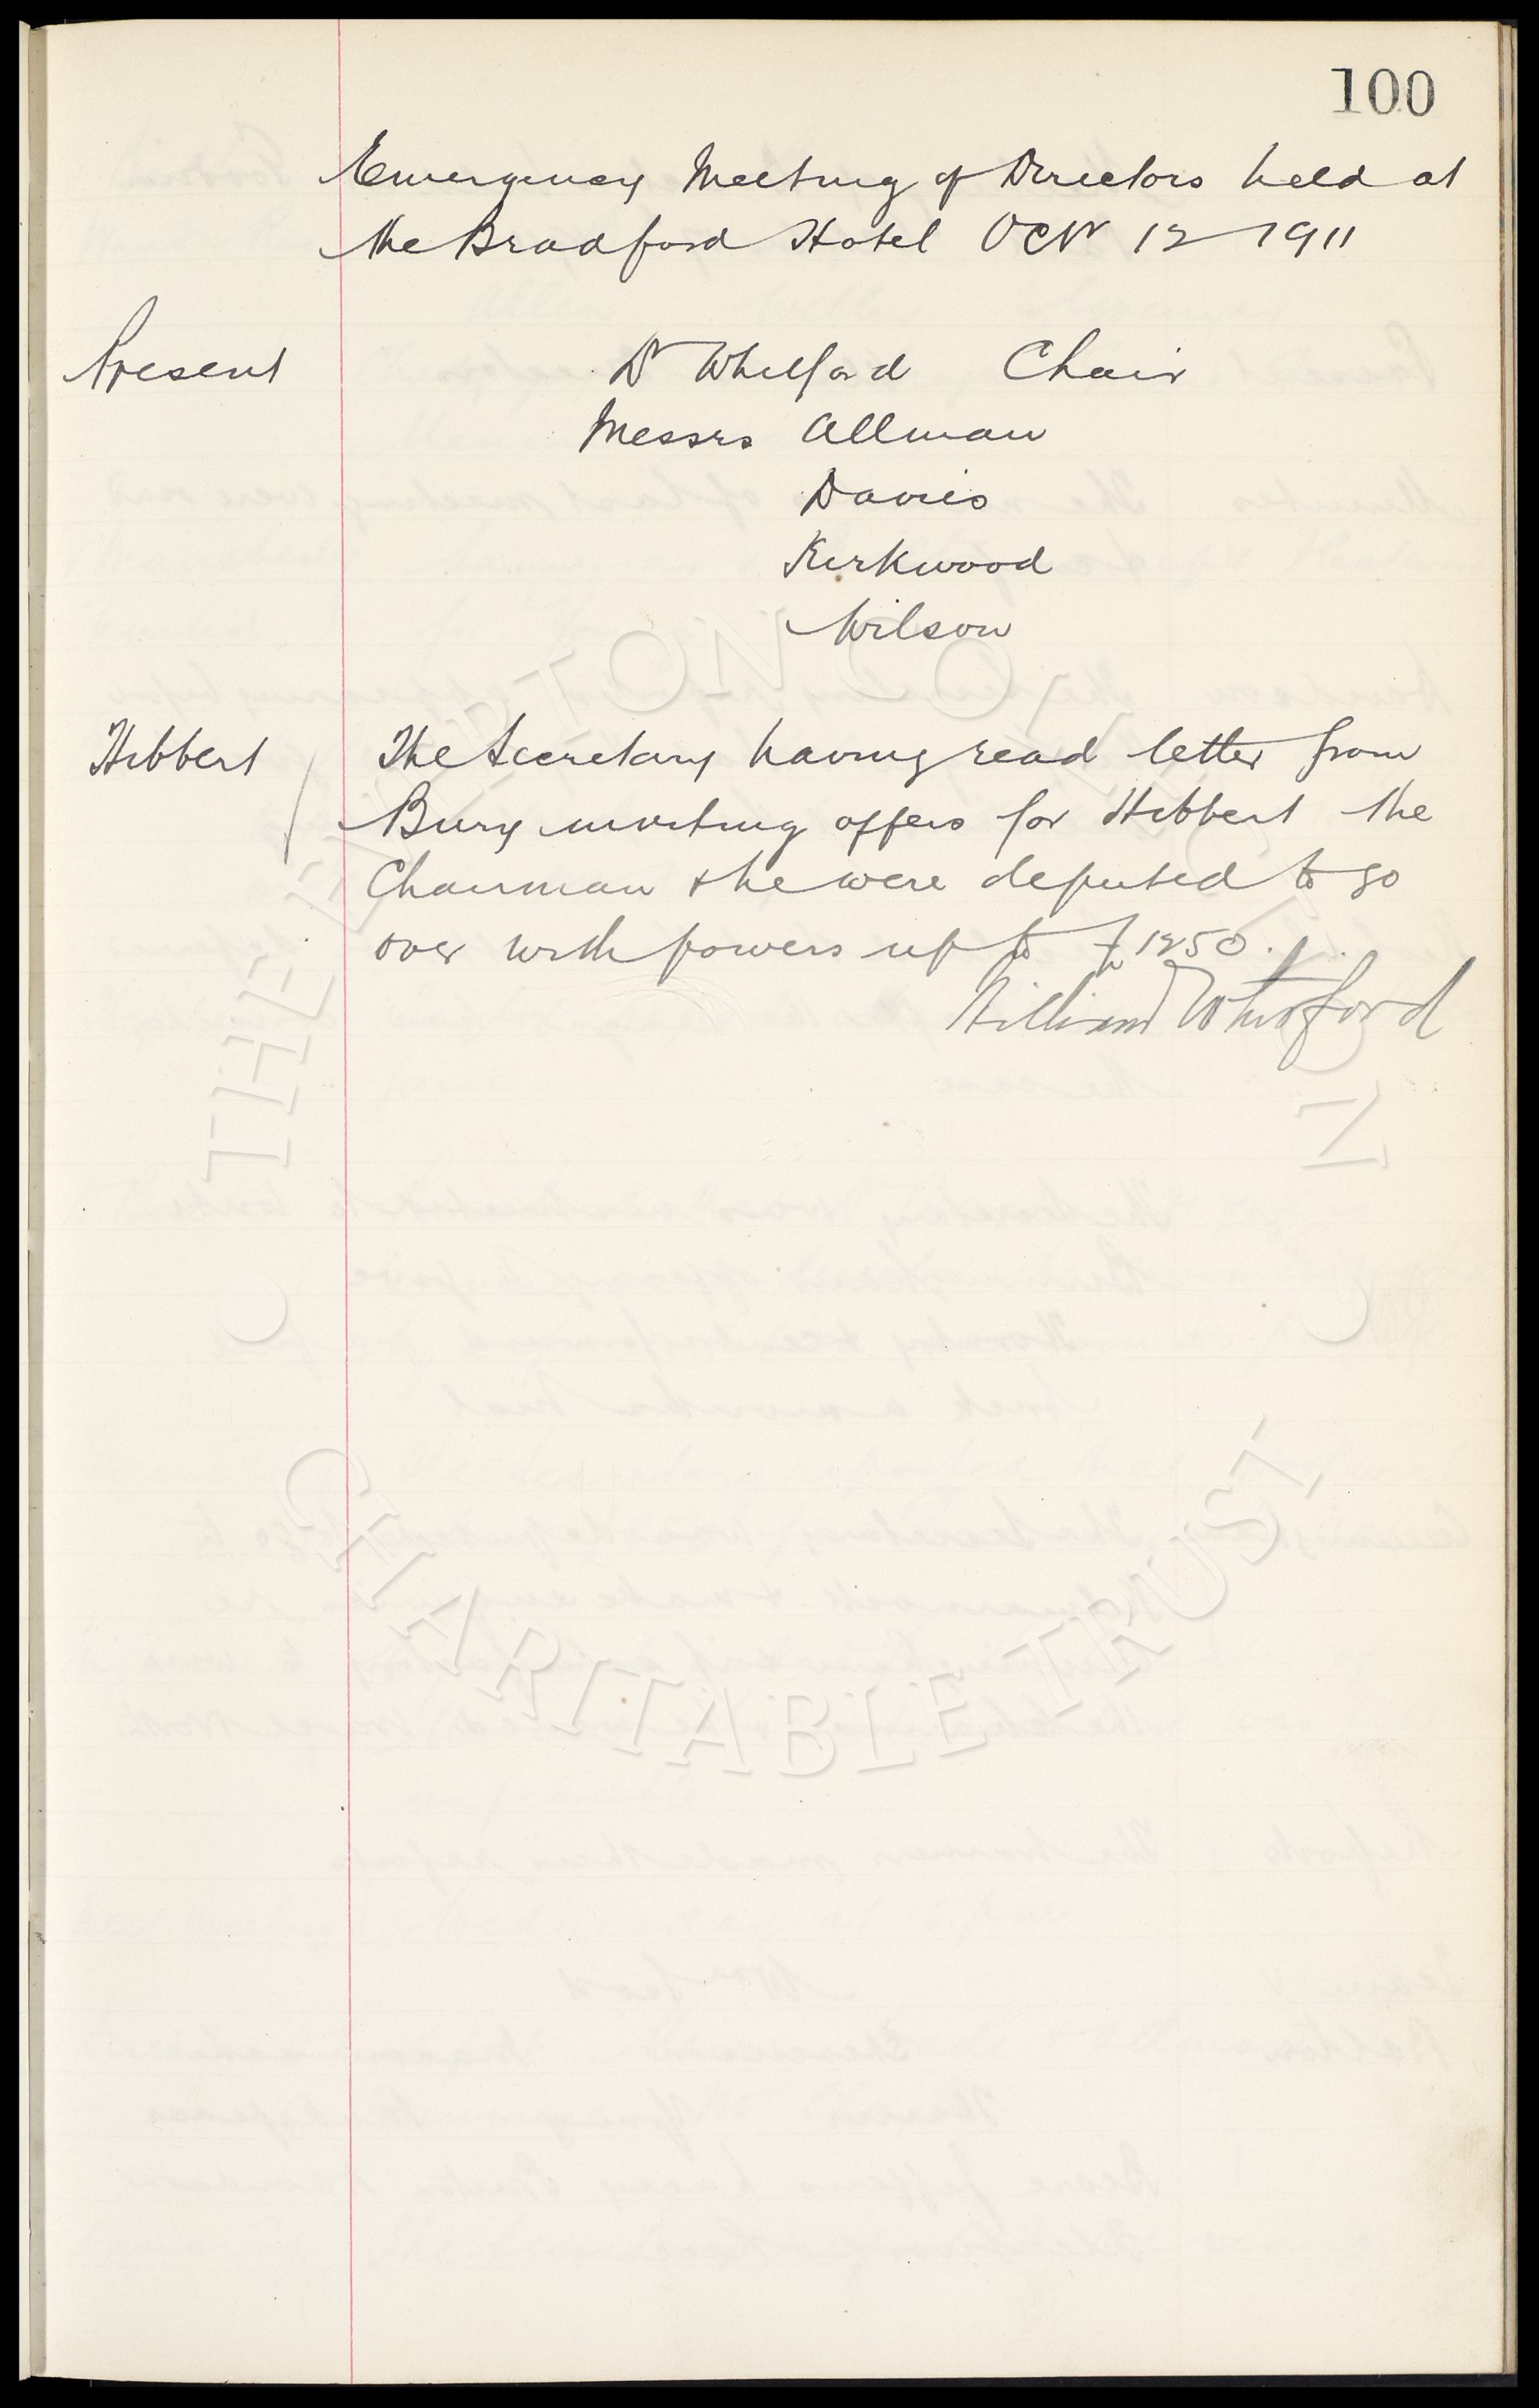 100
Emergency Meeting of Directors held at
the Bradford Hotel Octr 12 1911
Present
Dr Whitford Chair
Messrs Allman
Davies
Kirkwood
Wilson
Hibbert
The Secretary having read letter from
Bury inviting offers for Hibbert the
Chairman & he were deputed to go
over with powers up to £1250.
William Whitford
THE EVERTON COLLECTION
CHARITABLE TRUST